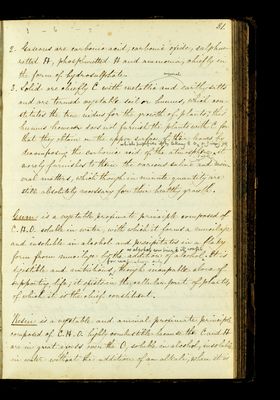 21.
2. Gaseous are carbonic acid, carbonic oxide, sulphu-
retted H, phosphuretted H and ammonia, chiefly in
the form of hydrosulphate.
3. Solid are chiefly C with metallic and earthy salts
and are termed vegetable soil or humus, which con-
stitutes the true nidus for the growth of plants; this
humus however does not furnish the plants with C for
that they obtain in the upper surface of the leaves by
decomposing the carbonic acid of the atmosphere, it
merely furnishes to them the various saline and min-
eral matters, which though in minute quantity are
still absolutely necessary for their healthy growth.
Gum is a vegetable proximate principle composed of
C. H. O. soluble in water, with which it forms a mucilage
and insoluble in alcohol and precipitates in a flaky
form from mucilage by the addition of alcohol. It is
digestible and nutritious, though incapable alone of
supporting life; it exists in the cellular part of plants
of which it is the chief constituent.
Resin is a vegetable and animal proximate principle
composed of C. H. O. highly combustible because the C and H
are in great excess over the O, soluble in alcohol, insoluble
in water without the addition of an alkali, when it is